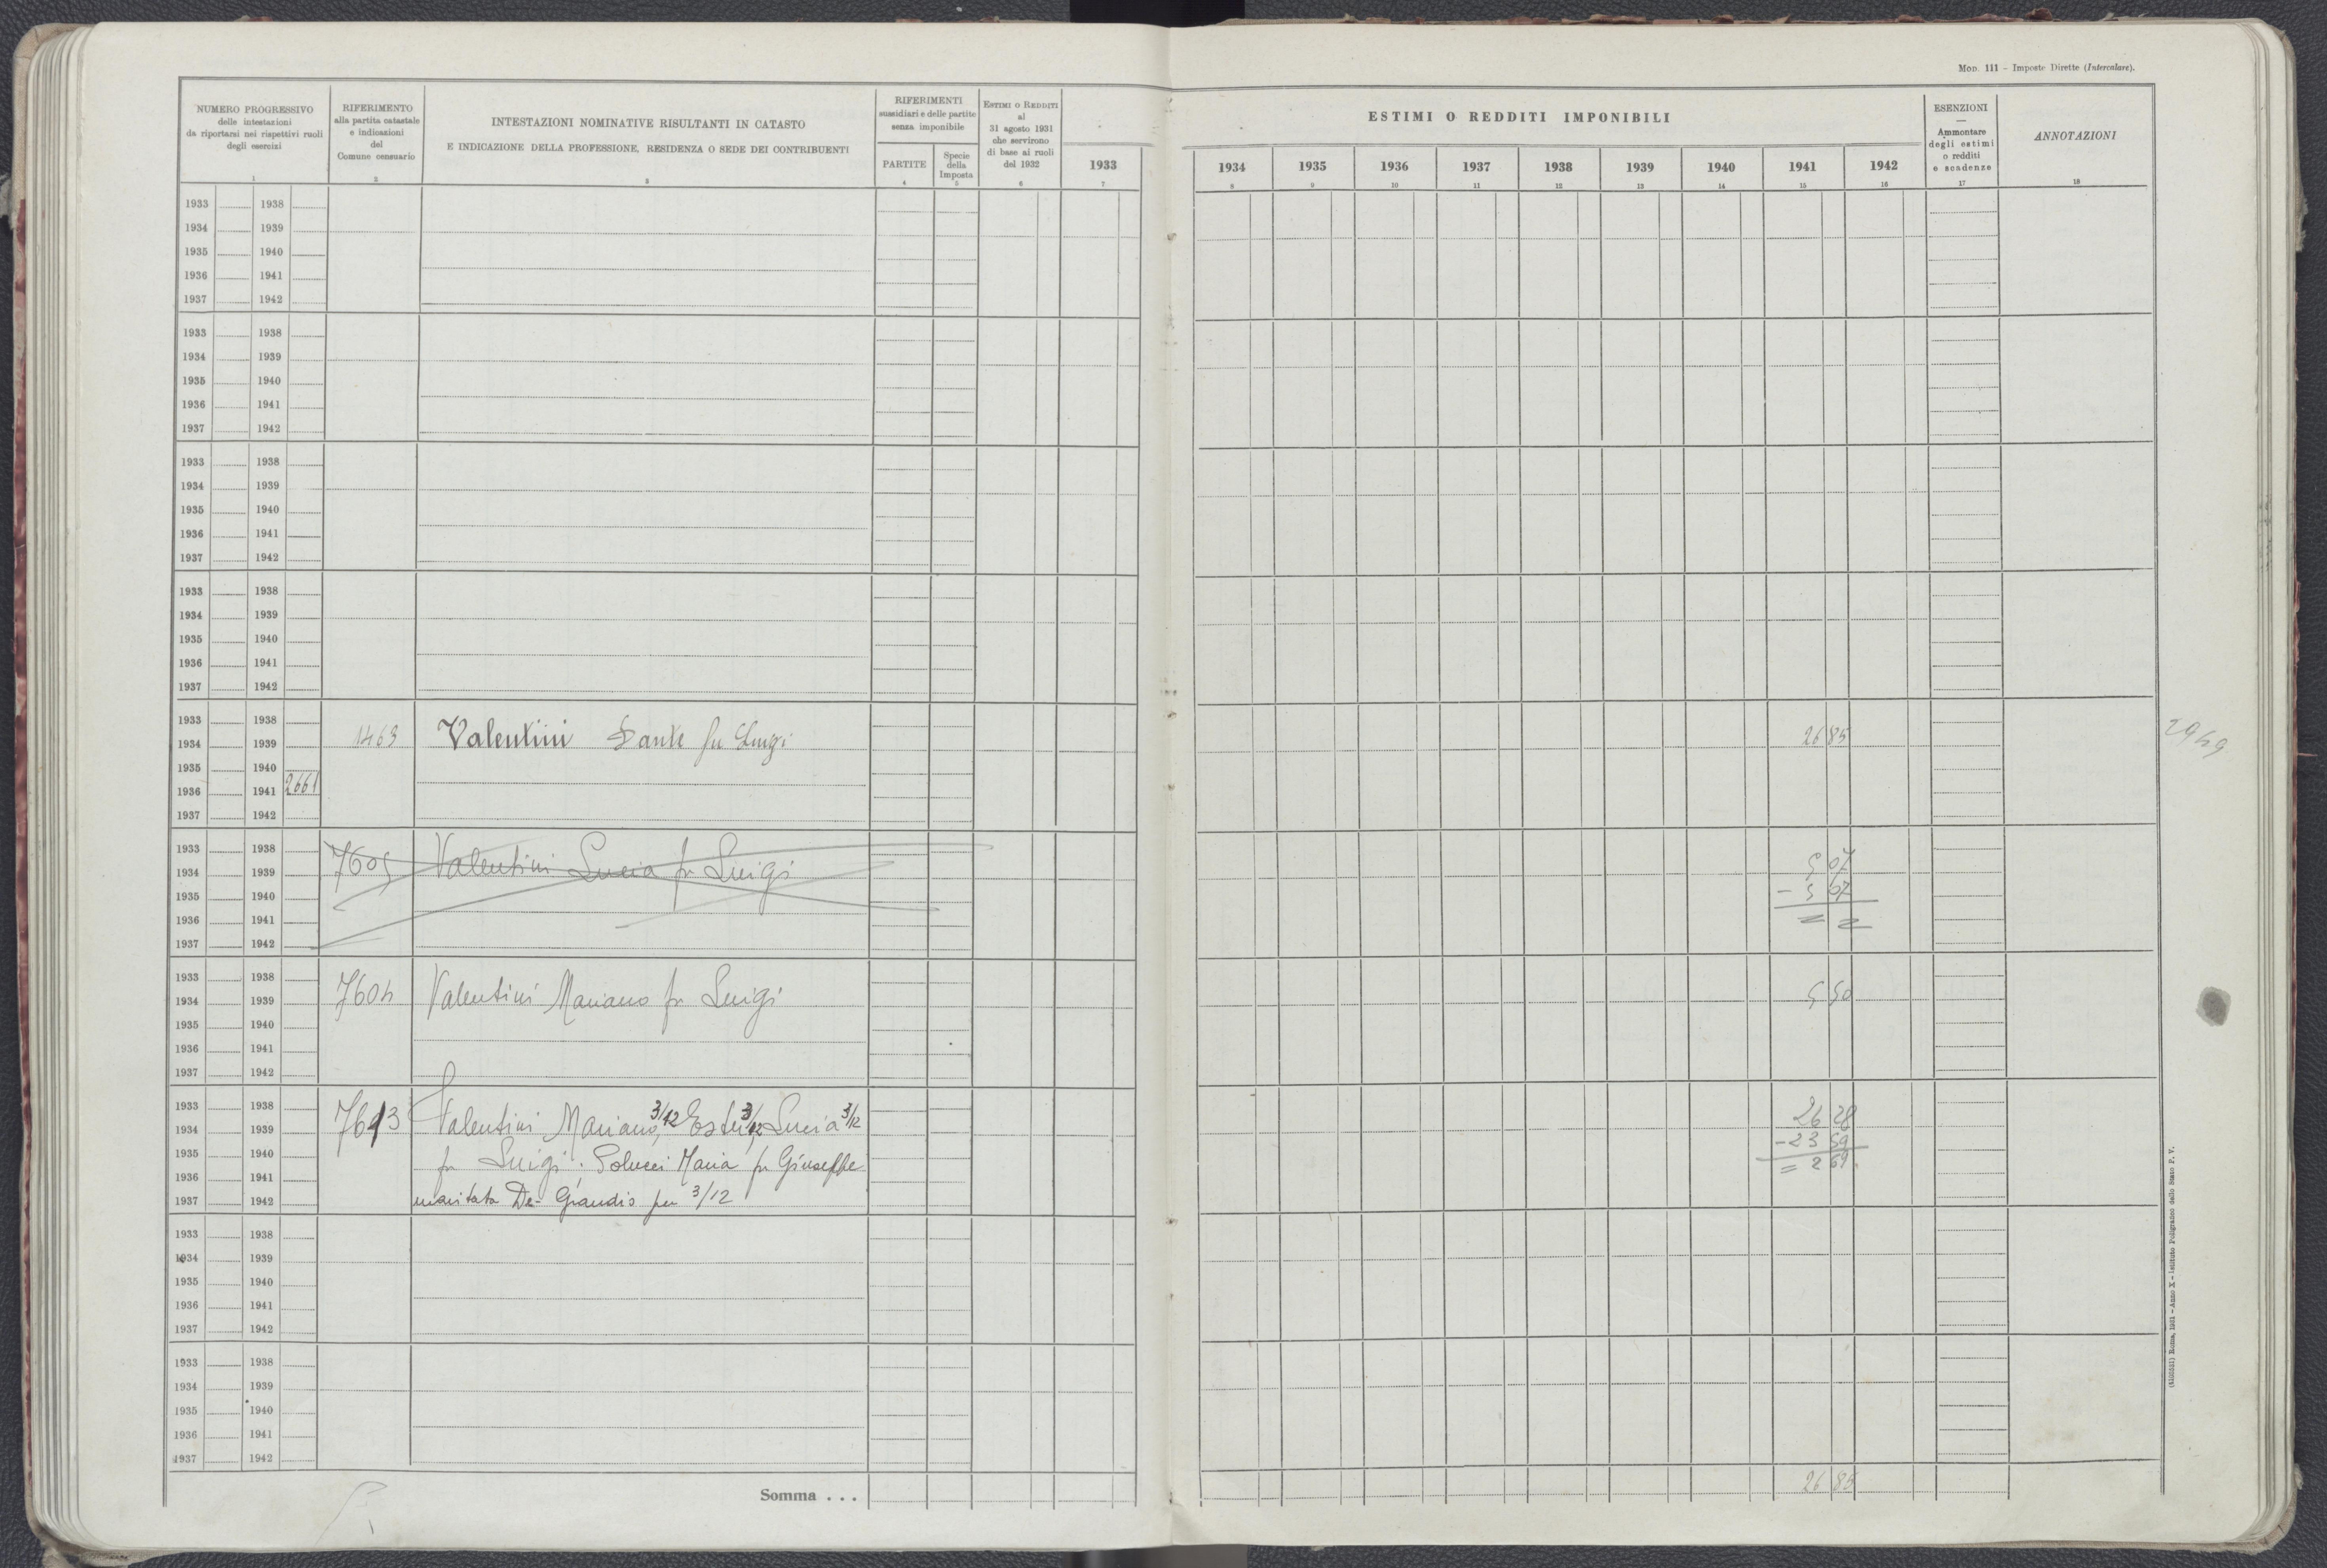 Mod. 111 - Imposte Dirette (Intercalare).
NUMERO PROGRESSIVO
delle intestazioni
da riportarsi nei rispettivi ruoli
degli esercizi
1
RIFERIMENTO
alla partita catastale
e indicazioni
del
Comune censuario
2
INTESTAZIONI NOMINATIVE RISULTANTI IN CATASTO
E INDICAZIONE DELLA PROFESSIONE, RESIDENZA O SEDE DEI CONTRIBUENTI
3
RIFERIMENTI
sussidiari e delle partite
senza imponibile
PARTITE
4
Specie
della
Imposta
5
ESTIMI O REDDITI
al
31 agosto 1931
che servirono
di base ai ruoli
del 1932
6
1933
7
ESTIMI O REDDITI IMPONIBILI
1934 1935 1936 1937 1938 1939 1940 1941 1942
8 9 10 11 12 13 14 15 16
ESENZIONI
—
Ammontare
degli estimi
o redditi
e scadenze
17
ANNOTAZIONI
18
1933 1938
1934 1939
1935 1940
1936 1941
1937 1942
1933 1938
1934 1939
1935 1940
1936 1941
1937 1942
1933 1938
1934 1939
1935 1940
1936 1941
1937 1942
1933 1938
1934 1939
1935 1940
1936 1941
1937 1942
1933 1938
1934 1939 1463 Valentini Dante fu Luigi 26 85
1935 1940
1936 1941 2661
1937 1942
1933 1938
1934 1939 7605 Valentini Lucia fu Luigi 5 07
1935 1940 - 5 07
1936 1941 = =
1937 1942
1933 1938
1934 1939 7604 Valentini Mariano fu Luigi 5 50
1935 1940
1936 1941
1937 1942
1933 1938
1934 1939 7613 Valentini Mariano, 3/12 Ester 3/12, Lucia 3/12 26 28
1935 1940 - 23 59
1936 1941 fu Luigi; Polucci Maria fu Giuseppe = 2 69
1937 1942 maritata De Grandis per 3/12
1933 1938
1934 1939
1935 1940
1936 1941
1937 1942
1933 1938
1934 1939
1935 1940
1936 1941
1937 1942
Somma . . . 26 85